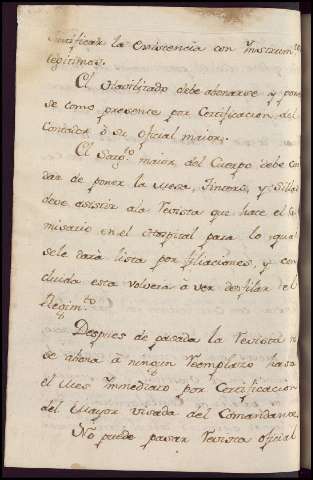 Justificar la existencia con Instrum.tos
legitimos.
El Havilitado debe abonarse y poner
se como presente por Certificacion del
Contador ò su oficial maior.
El Sarg.to maior del Cuerpo debe Con
dar de poner la mesa, Tintero, y Sillas
deve asistir ala Revista que hace el Co
misario en el Hospital para lo qual
sele darà lista por filiaciones, y con
cluida esta volverà à ver desfilar el
Regim.to
Despues de pasada la Revista no
se abona à ningun Reemplazo hasta
el mes Immediato por Certificacion
del Mayor visada del Comandante.
No puede pasar Revista oficial